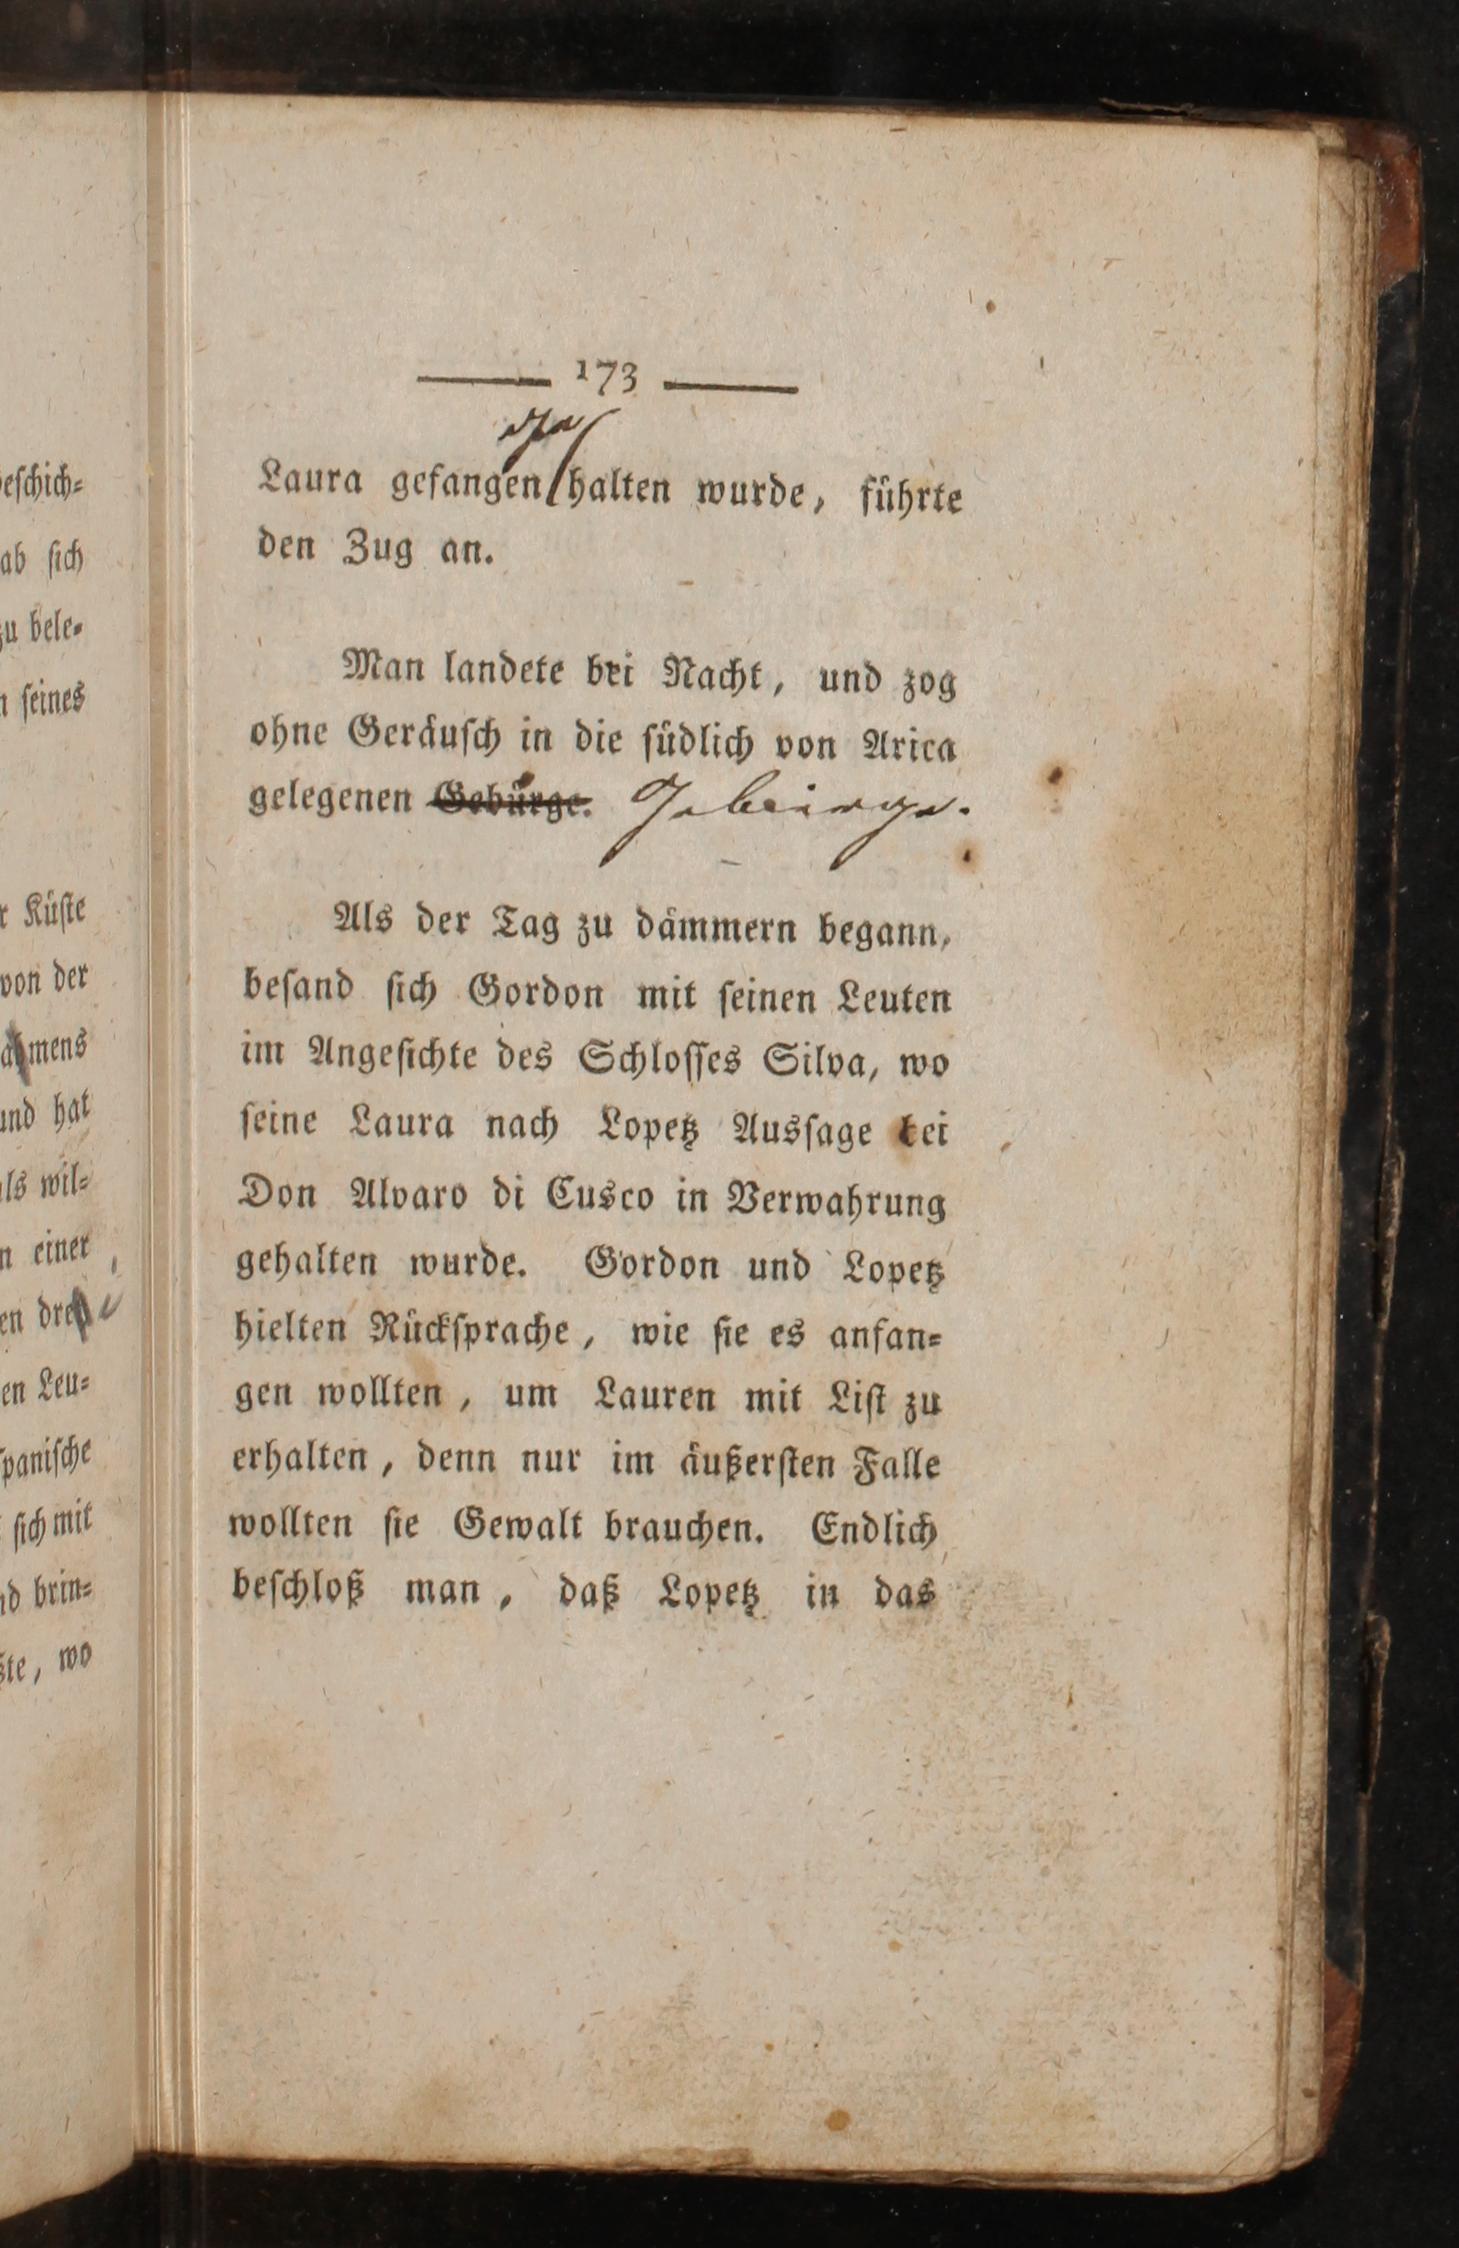 eſchich⸗
ab ſich
zu bele⸗
n ſeines
r Küſte
von der
mens
und hat
ls wil⸗
n einer
en drey
en Leu⸗
ſpaniſche
ſich mit
nd brin⸗
ßte, wo
173
ge
Laura gefangen halten wurde, führte
den Zug an.
Man landete bei Nacht, und zog
ohne Geräuſch in die ſüdlich von Arica
gelegenen Gebürge. Gebirge.
Als der Tag zu dämmern begann,
beſand ſich Gordon mit ſeinen Leuten
im Angeſichte des Schloſſes Silva, wo
ſeine Laura nach Lopetz Ausſage bei
Don Alvaro di Cusco in Verwahrung
gehalten wurde. Gordon und Lopetz
hielten Rückſprache, wie ſie es anfan⸗
gen wollten, um Lauren mit Liſt zu
erhalten, denn nur im äußerſten Falle
wollten ſie Gewalt brauchen. Endlich
beſchloß man, daß Lopetz in das